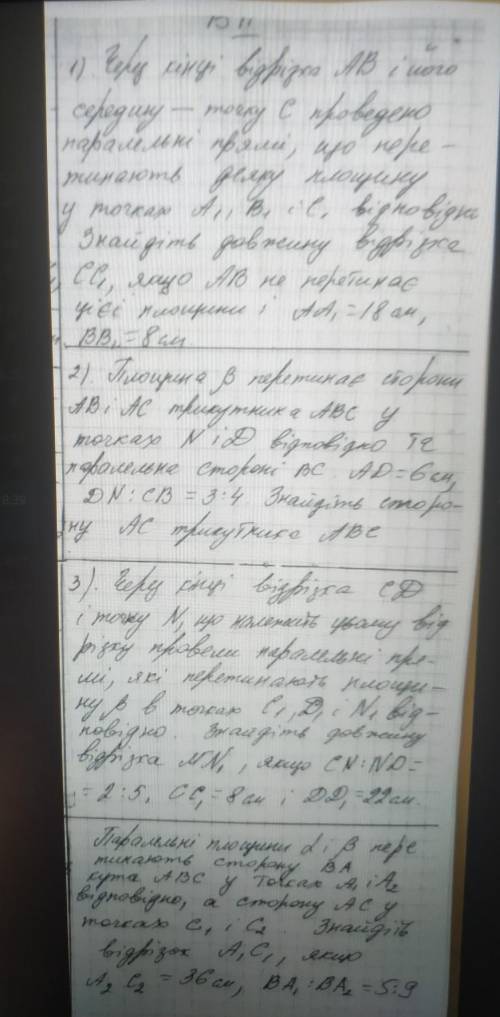 В II
1). Через кінці відрізка АВ і його
середину — точку С проведено
паралельні прямі, що пере-
тинають деяку площину
у точках А₁, В₁ і С₁ відповідно
Знайдіть довжину відрізка
СС₁, якщо АВ не перетинає
цієї площини і АА₁ = 18 см,
ВВ₁ = 8 см
2). Площина β перетинає сторони
АВ і АС трикутника АВС у
точках N і D відповідно та
паралельна стороні ВС. AD = 6 см,
DN : CB = 3:4. Знайдіть сторо-
ну АС трикутника АВС
3). Через кінці відрізка CD
і точку N, що належить цьому від
різку провели паралельні пря-
мі, які перетинають площи-
ну β в точках C₁, D₁ і N₁ від-
повідно. Знайдіть довжину
відрізка NN₁, якщо CN : ND =
= 2 : 5, CC₁ = 8 см і DD₁ = 22 см.
Паралельні площини α і β пере
тинають сторону ВА
кута АВС у точках А₁ і А₂
відповідно, а сторону АС у
точках С₁ і С₂. Знайдіть
відрізок А₁С₁, якщо
А₂С₂ = 36 см, ВА₁ : ВА₂ = 5:9